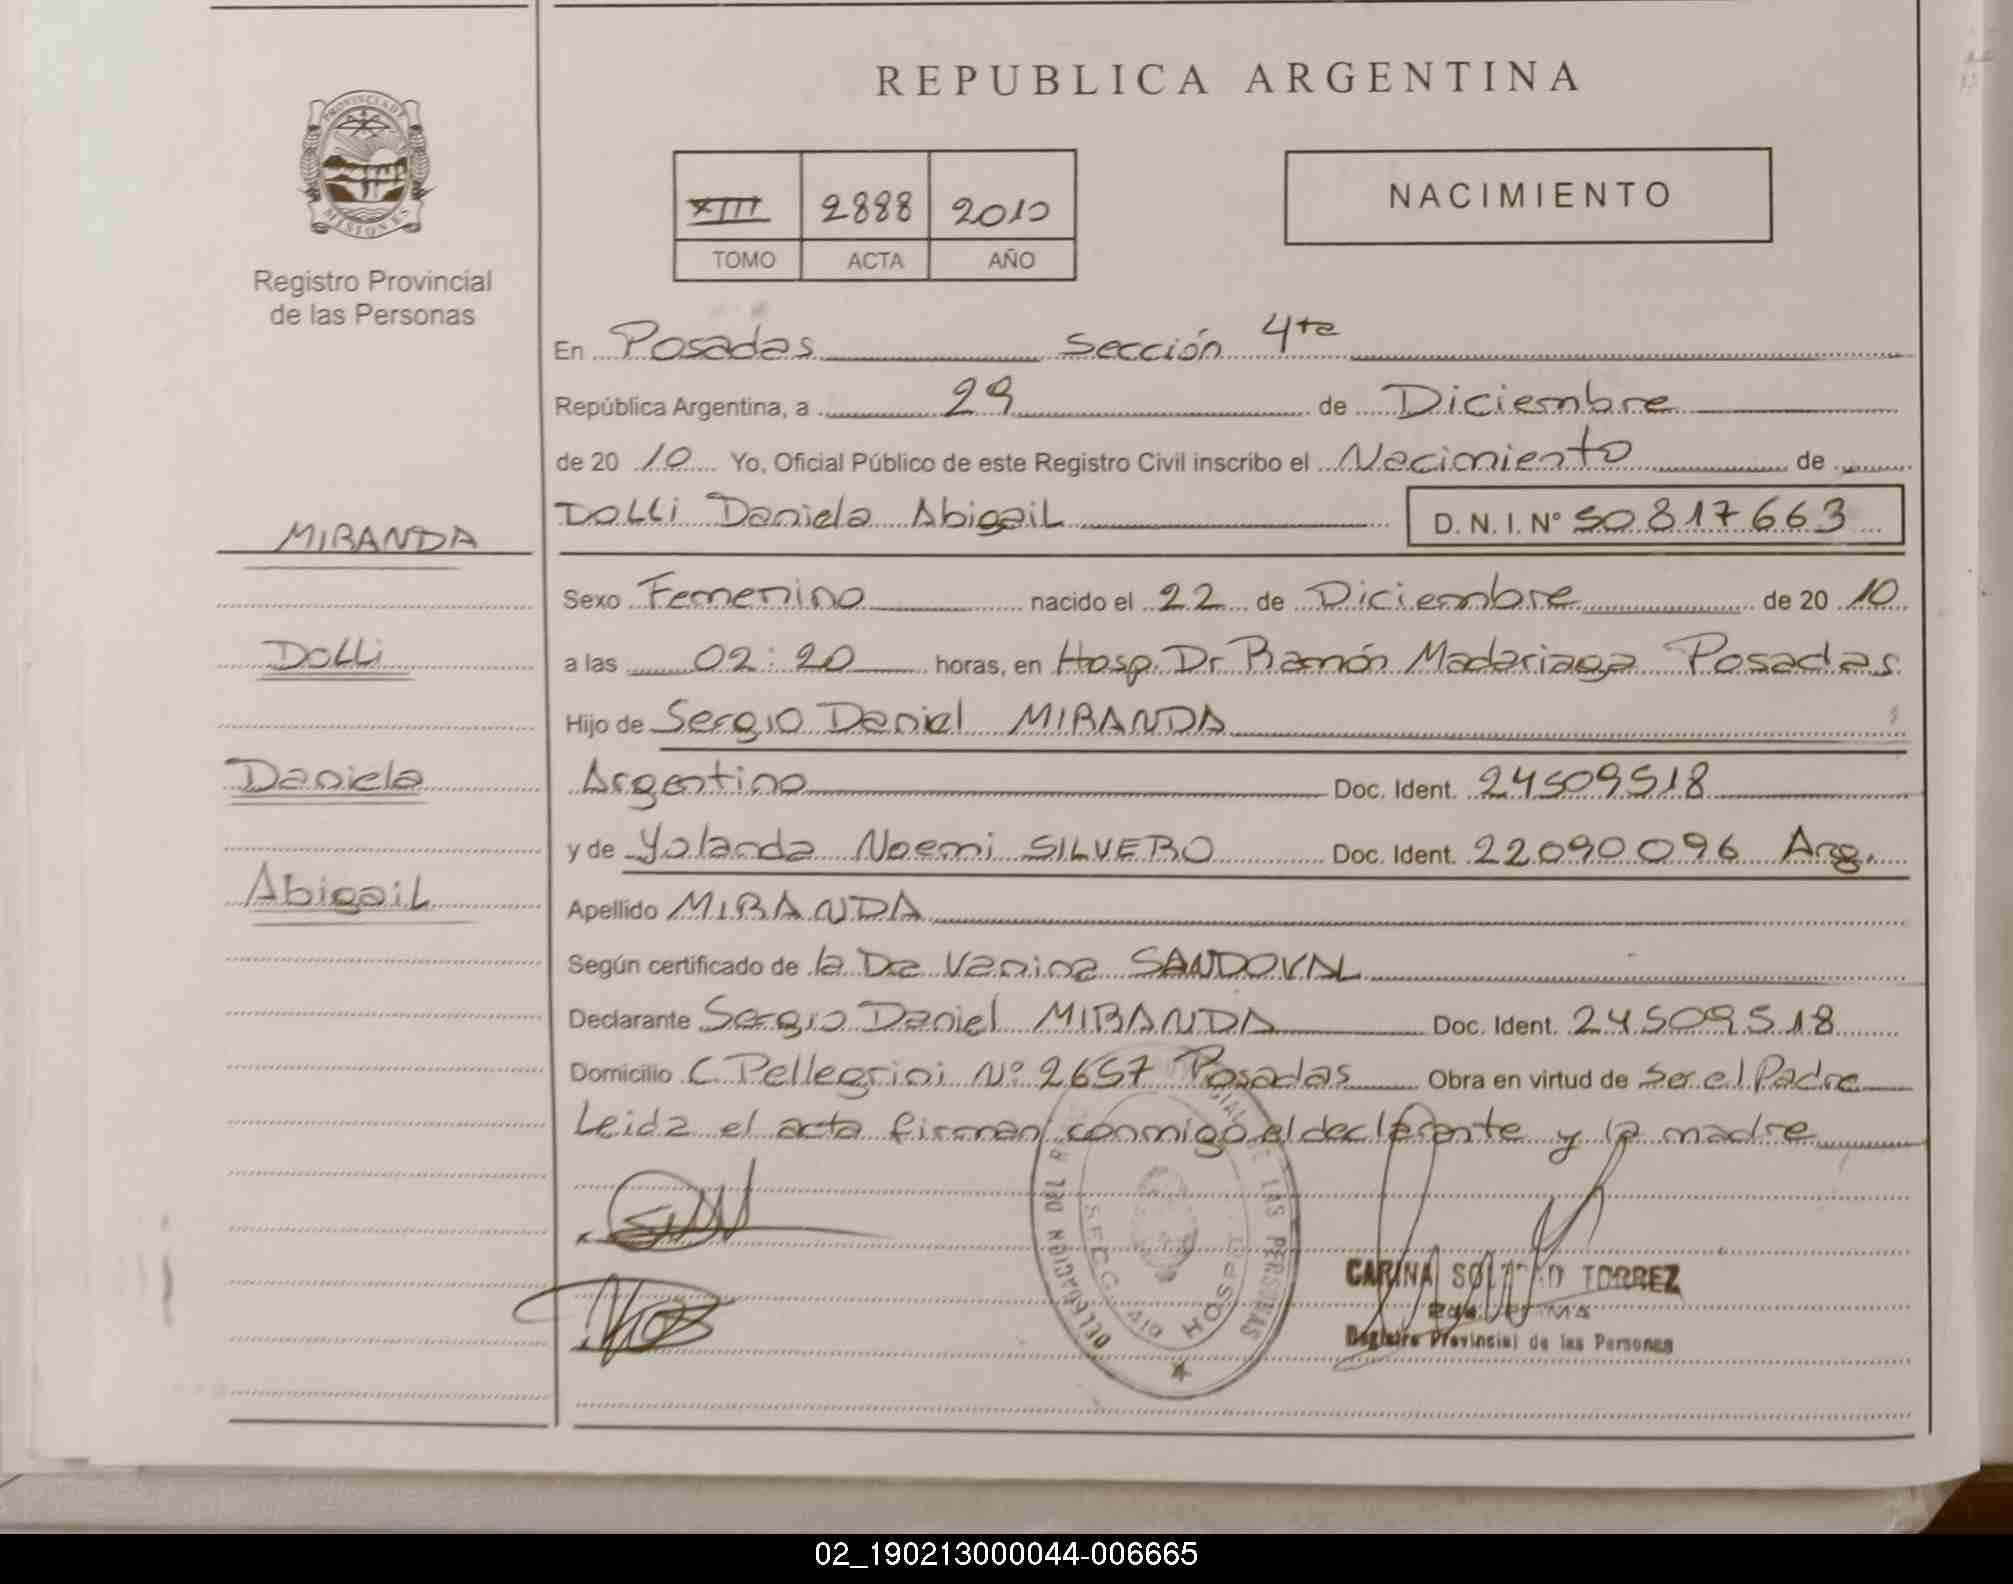 REPUBLICA ARGENTINA
PROVINCIA DE
MISIONES
Registro Provincial
de las Personas
XIII 2888 2010
TOMO ACTA AÑO
NACIMIENTO
En Posadas Sección 4ta
República Argentina, a 29 de Diciembre
de 20 10 Yo, Oficial Público de este Registro Civil inscribo el Nacimiento de
DOLLi Daniela AbigaiL D. N. I. N° 50817663
MIRANDA
Dolli
Daniela
AbigaiL
Sexo Femenino nacido el 22 de Diciembre de 20 10
a las 02:20 horas, en Hosp. Dr Ramón Madariaga Posadas
Hijo de Sergio Daniel MIRANDA
Argentino Doc. Ident. 24509518
y de Yolanda Noemi SILVERO Doc. Ident. 22090096 Arg.
Apellido MIRANDA
Según certificado de la Dra Vanina SANDOVAL
Declarante Sergio Daniel MIRANDA Doc. Ident. 24509518
Domicilio C. Pellegrini N° 2657 Posadas Obra en virtud de Ser el Padre
Leida el acta firman conmigo el declarante y la madre
DELEGACION DEL DE LAS PERSONAS
SECC. HOSP.
CARINA SOLEDAD TORREZ
Registro Provincial de las Personas
02_190213000044-006665